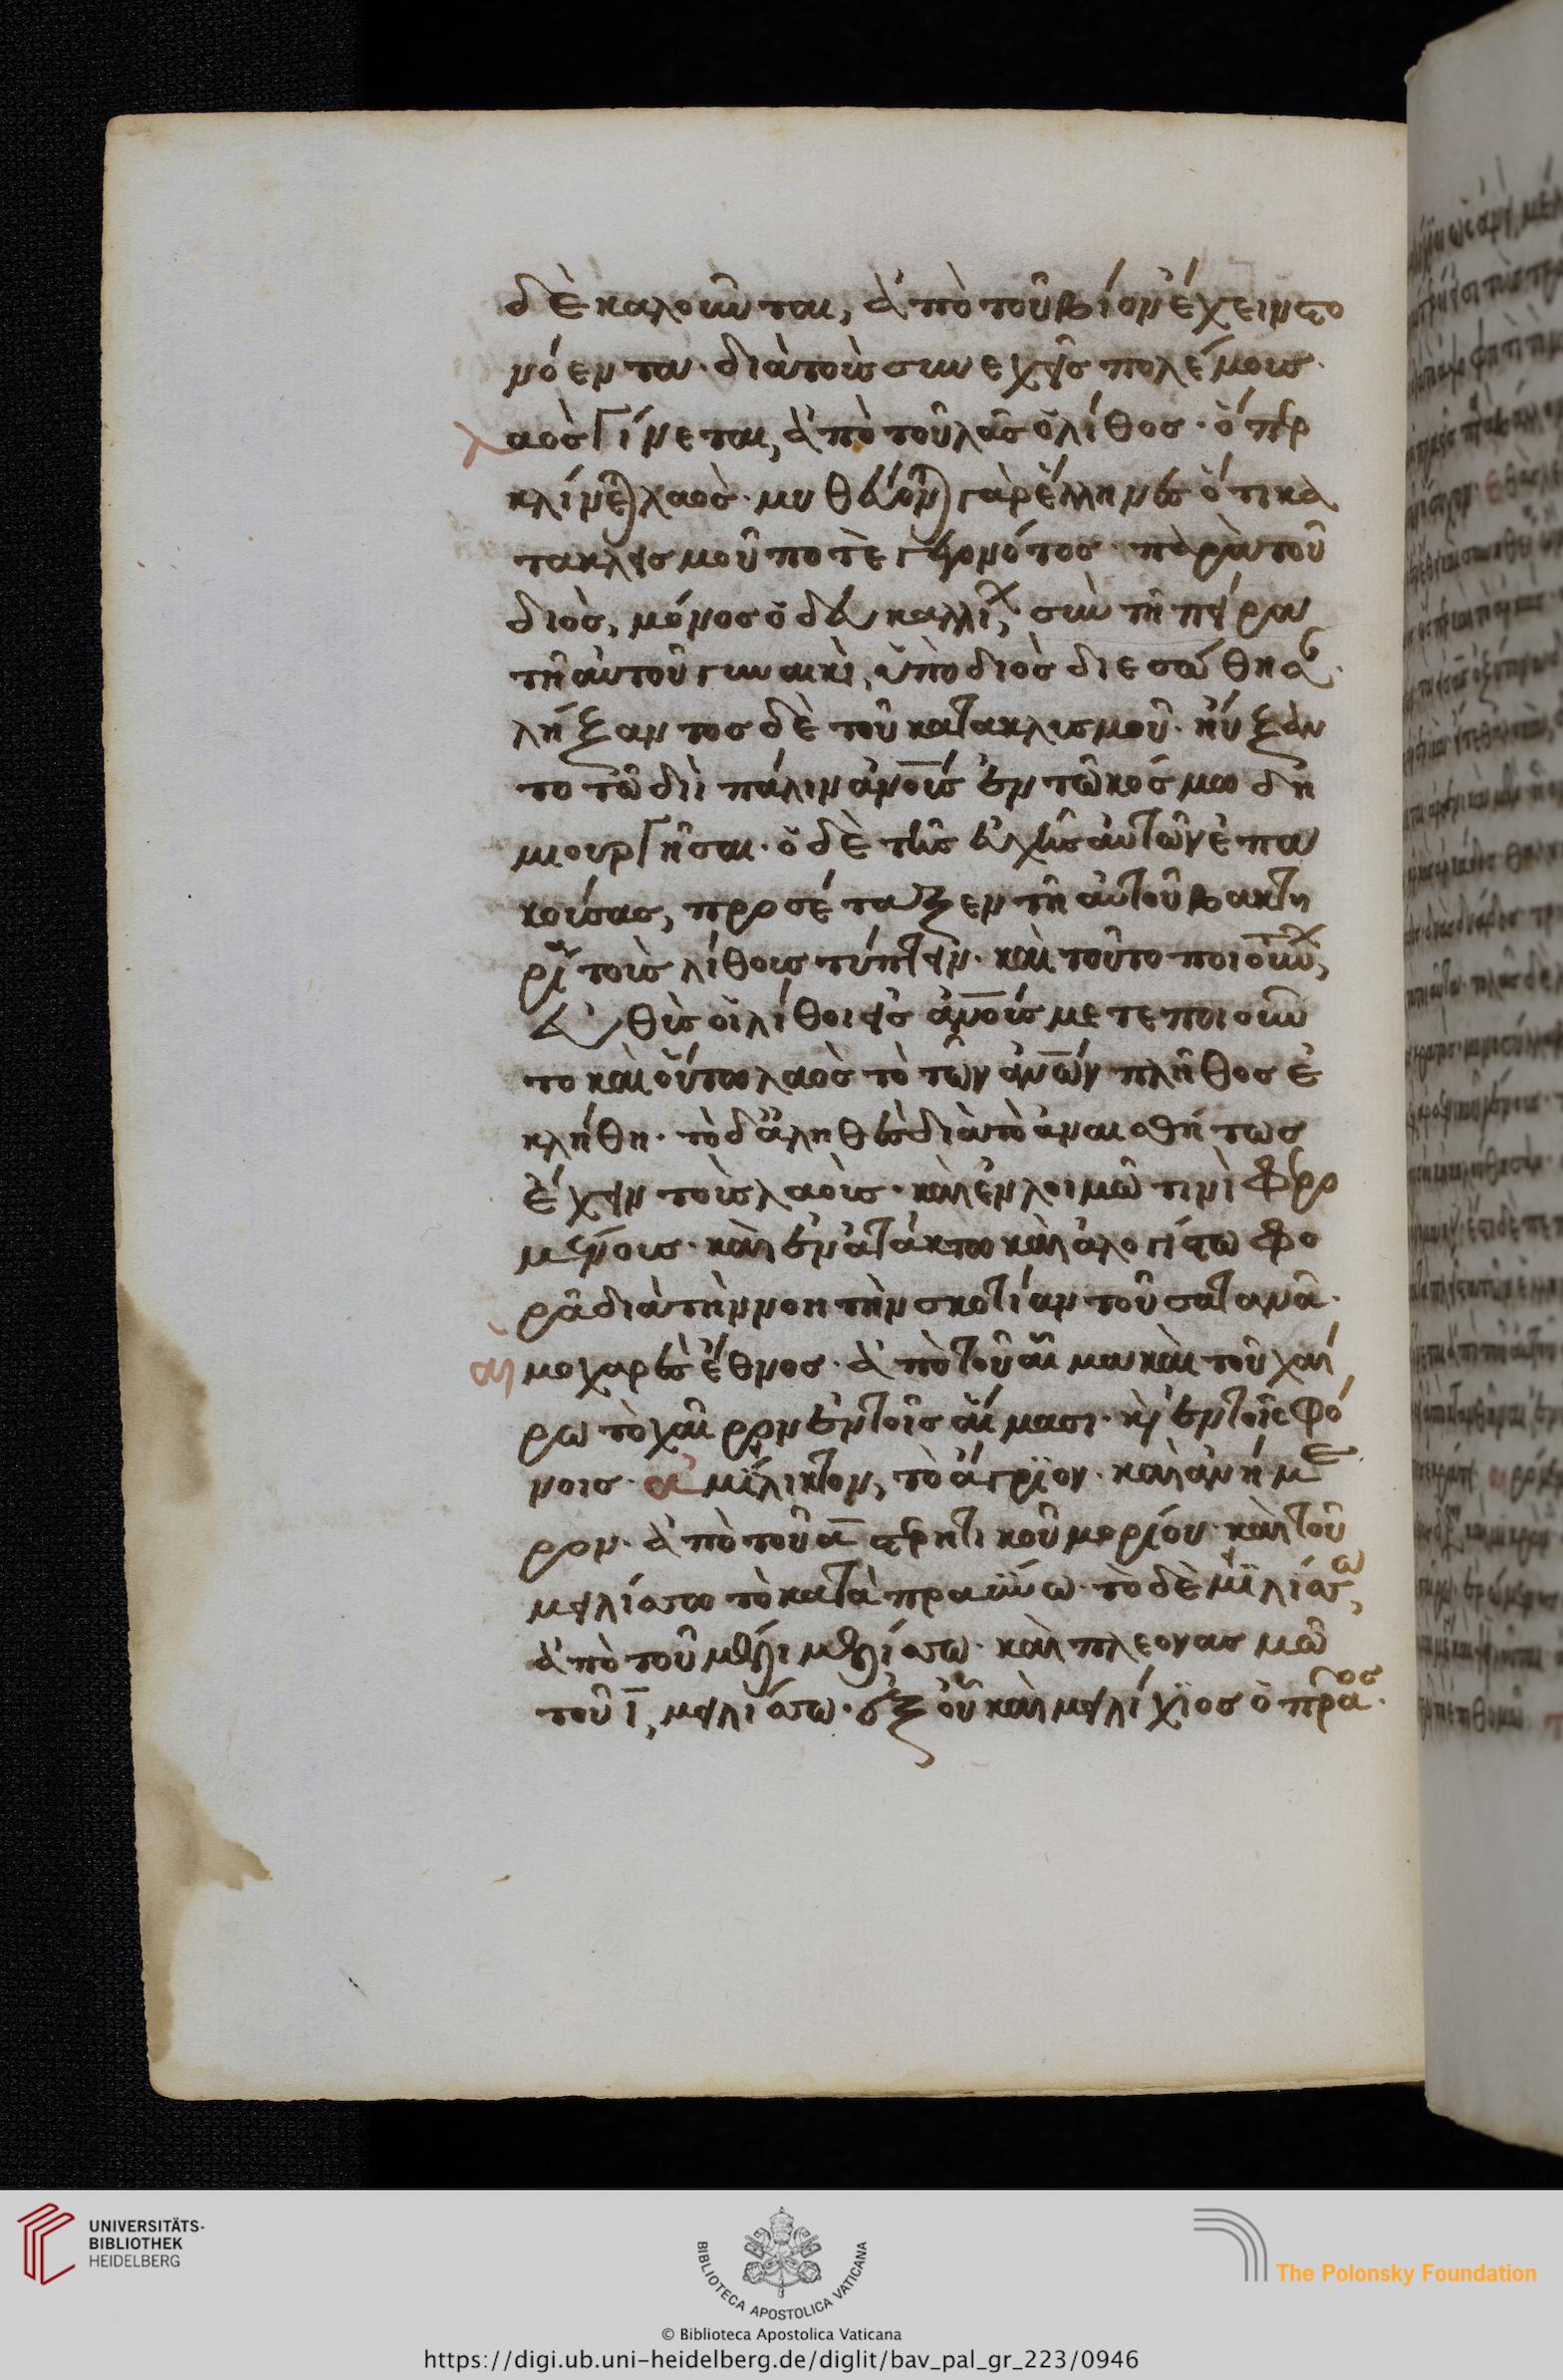 δὲ καλοῦνται, ἀπὸ τοῦ βίον ἔχειν στο
νόεντα· διὰ τοὺς συνεχεῖς πολέμους·
λαὸς γίνεται, ἀπὸ τοῦ λᾶς ὁ λίθος· ὅπερ
κλίνεται λαός· μυθεύονται γὰρ ἕλληνες ὅτι κα
τακλεισμοῦ ποτὲ γεγονότος παρὰ τοῦ
διὸς, μόνος ὁ δευκαλλί, σὺν τῇ πείρα
τῇ αὐτοῦ γυναικὶ, ὑπὸ διὸς διεσώθησαν·
λήξαντος δὲ τοῦ κατακλισμοῦ· ηὔξαν
το τῶ διῒ πάλιν ἀνους ἐν τῶ κόσμω δη
μιουργῆσαι· ὁ δὲ τῆς εὐχῆς αὐτῶν ἐπα
κούσας, προσέταξεν τῇ αὐτοῦ βακτη
ρία τοὺς λίθους τύπτειν· καὶ τοῦτο ποιοῦν,
εὐθὺς οἱ λίθοι εἰς ἀνους μετεποιοῦν
το καὶ οὕτω λαὸς τὸ τῶν ἀνων πλῆθος ἐ
κλήθη· τὸ δ' ἀληθὲς διὰ τὸ ἀναισθήτως
ἔχειν τοὺς λαοὺς· καὶ ἐν λοιμῶ τινὶ φερο
μένους· καὶ ἐν ἀτάκτω καὶ ἀλογίστω φο
ρᾶ διὰ τὴν νοητὴν σκοτίαν τοῦ σατανᾶ·
αἱμοχαρὲς ἔθνος· ἀπὸ τοῦ αἷμα καὶ τοῦ χαί
ρω τὸ χαῖρον ἐν τοῖς αἵμασι· κὶ ἐν τοῖς φό
νοις· ἀμίλικτον, τὸ ἄγριον· καὶ ἀνήμε
ρον· ἀπὸ τοῦ α στερητικοῦ μορίου· καὶ τοῦ
μειλίσσω τὸ καταπραΰνω· τὸ δὲ μιλίσσω,
ἀπὸ τοῦ μέλι μελίσσω· καὶ πλεονασμῶ
τοῦ ι, μειλίσσω· ἐξ οὗ καὶ μειλίχϊος ὁ πρᾶος·
UNIVERSITÄTS-
BIBLIOTHEK
HEIDELBERG
BIBLIOTECA APOSTOLICA VATICANA
The Polonsky Foundation
© Biblioteca Apostolica Vaticana
https://digi.ub.uni-heidelberg.de/diglit/bav_pal_gr_223/0946